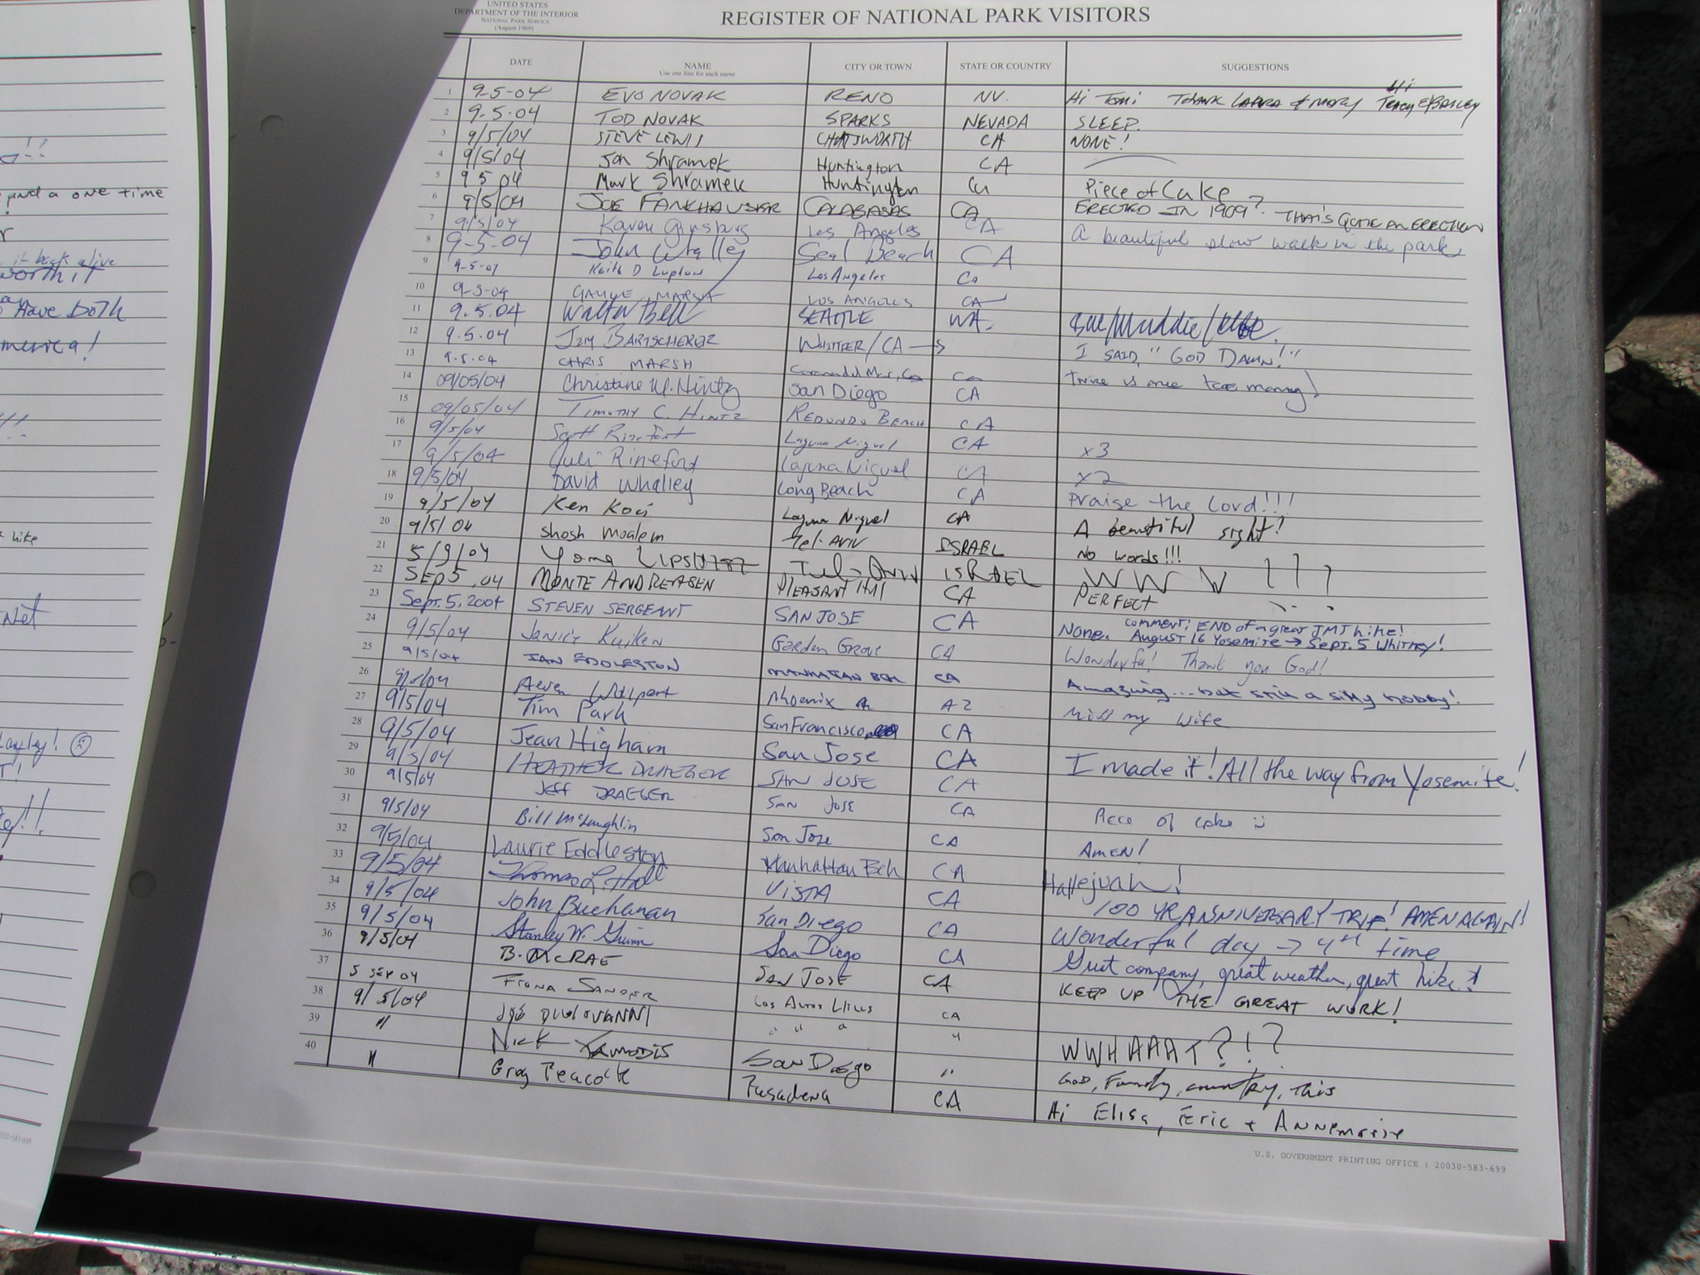 UNITED STATES
DEPARTMENT OF THE INTERIOR
NATIONAL PARK SERVICE
(August 1969)
REGISTER OF NATIONAL PARK VISITORS
DATE NAME CITY OR TOWN STATE OR COUNTRY SUGGESTIONS
Use one line for each name
Hi
1 9-5-04 EVO NOVAK RENO NV. Hi Tomi THANK LAURA & MARY
2 9.5.04 TOD NOVAK SPARKS NEVADA SLEEP.
3 9/5/04 STEVE LEWIS CHATSWORTH CA NONE!
4 9/5/04 Jon Shramek Huntington CA
5 9 5 04 Mark Shramek Huntington Piece of Cake
6 9/5/04 JOE FANKHAUSER CALABASAS CA ERECTED IN 1909? THAT'S QUITE AN ERECTION
7 9/5/04 Karen Los Angeles CA A beautiful slow walk in the park
8 9-5-04 John Seal Beach CA
9 9-5-04 Keith D Lupton Los Angeles Ca
10 9-5-04 MARSH LOS ANGELES CA
11 9.5.04 Walter Bell SEATTLE WA.
12 9.5.04 JIM WHITTIER/CA I SAID, "GOD DAMN!"
13 9.5.04 CHRIS MARSH Ca
14 09/05/04 Christine W. Hintz San Diego CA
15 09/05/04 TIMOTHY C. HINTZ REDONDO BEACH CA
16 9/5/04 Scott Laguna Niguel CA x3
17 9/5/04 Juli Rineford Laguna Niguel CA x2
18 9/5/04 David Whalley Long Beach CA Praise the Lord!!!
19 9/5/04 Ken Koci Laguna Niguel CA A beautiful sight!
20 9/5/04 Shosh Moalem Tel-Aviv ISRAEL No words!!!
21 5/9/04 Tel-Aviv ISRAEL W W W ! ! !
22 SEP 5, 04 MONTE ANDREASEN PLEASANT Hill CA PERFECT
23 Sept. 5, 2004 STEVEN SERGEANT SAN JOSE CA comment: END of a great JMT hike!
None. August 16 Yosemite → Sept. 5 Whitney!
24 9/5/04 Kuiken Garden Grove CA Wonderful! Thank you God!
25 9/5/04 IAN EDDLESTON MANHATTAN BCH CA Amazing... but still a silly hobby!
26 9/5/04 Phoenix AZ Miss my wife
27 9/5/04 Tim Park San Francisco CA
28 9/5/04 Jean Higham San Jose CA I made it! All the way from Yosemite!
29 9/5/04 HEATHER DRAEGER SAN JOSE CA
30 9/5/04 JEFF DRAEGER SAN JOSE CA Piece of cake
31 9/5/04 Bill McLaughlin San Jose CA AMEN!
32 9/5/04 Laurie Eddleston Manhattan Bch CA Hallejuah!
33 9/5/04 Thomas L. VISTA CA 100 YR ANNIVERSARY TRIP! AMEN AGAIN!
34 9/5/04 John Buchanan San Diego CA Wonderful day → 4th time
35 9/5/04 Stanley W. San Diego CA Great company, great weather, great hike!
36 9/5/04 B. McRAE SAN JOSE CA KEEP UP THE GREAT WORK!
37 5 SEP 04 FIONA Los Altos Hills CA
38 9/5/04 " " " " WWHAAAT?!?
39 " Nick San Diego " God, Family, country, this
40 " Greg Peacock Pasadena CA Hi Elisa, Eric + Annemarie
U.S. GOVERNMENT PRINTING OFFICE : 20030-583-699
and a one time
worth it
Have both
America!
hike
Net